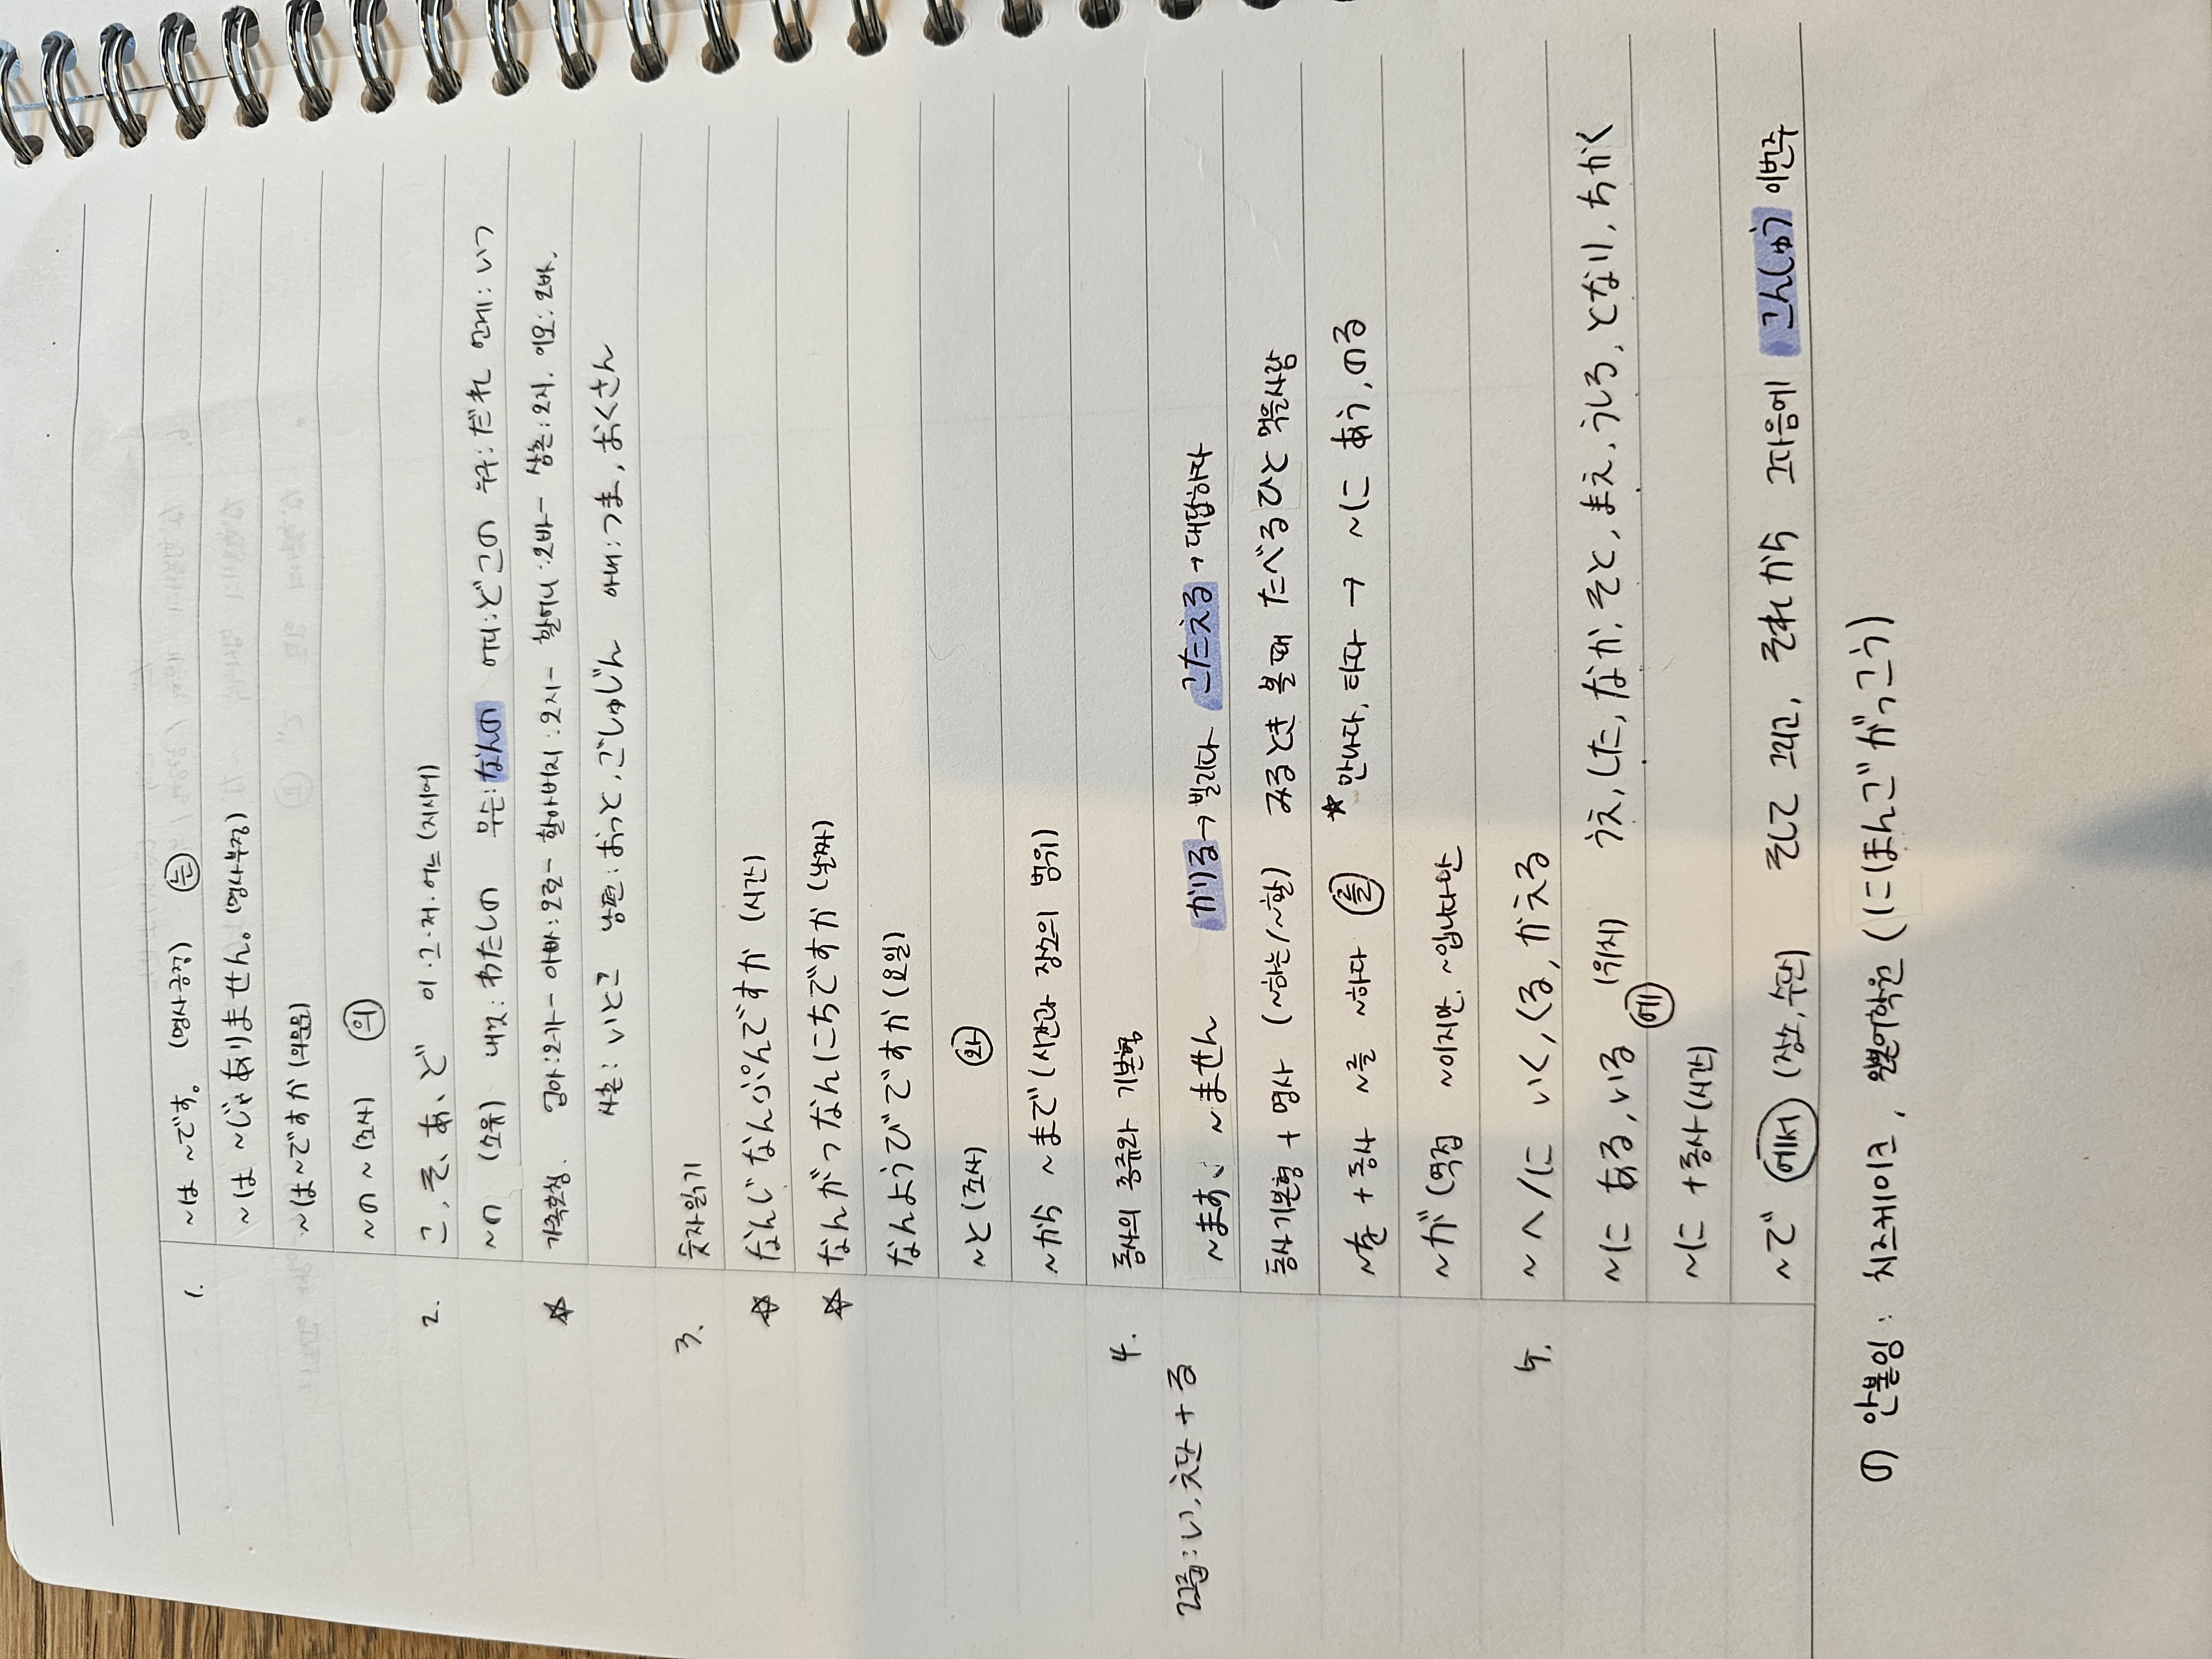 1. ~は ~です。 (명사긍정) 는
~は ~じゃありません。(명사부정)
~は~ですか (의문문)
~の~ (조사) 의
2. こ, そ、あ、ど 이.그.저.어느 (지시어)
~の (소유) 내것: わたしの 무슨: なんの 어디: どこの 누구: だれ 언제: いつ
☆ 가족호칭. 엄마:오카- 아빠: 오토- 할아버지: 오지- 할머니: 오바- 삼촌: 오지. 이모: 오바.
사촌: いとこ 남편: おっと, ごしゅじん 아내: つま, おくさん
3. 숫자읽기
☆ なんじなんぷんですか (시간)
☆ なんがつなんにちですか (날짜)
なんようびですか (요일)
~と (조사) 와
~から ~まで (시간과 장소의 범위)
4. 동사의 종류와 기본형
2그룹: い, え단 + る ~ます、 ~ません かりる → 빌리다 こたえる → 대답하다
동사기본형 + 명사 (~하는/~할) みるとき 볼 때 たべるひと 먹을사람
~を + 동사 ~를 ~하다 를 ★ 만나다, 타다 → ~に あう, のる
~が (역접 ~이지만. ~입니다만
5. ~へ/に いく, くる, かえる
~に ある, いる (위치) うえ, した, なか, そと, まえ, うしろ, となり, ちかく
~に + 동사 (시간) 에
~で 에서 (장소, 수단) そして 그리고, それから 그다음에 こんしゅう 이번주
の 안붙임 : 치즈케이크, 일본어학원 (にほんごがっこう)